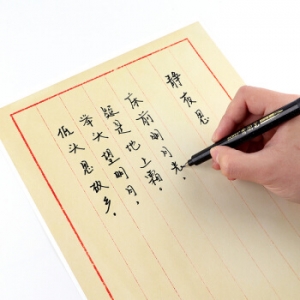 静夜思
床前明月光，
疑是地上霜，
举头望明月，
低头思故乡。